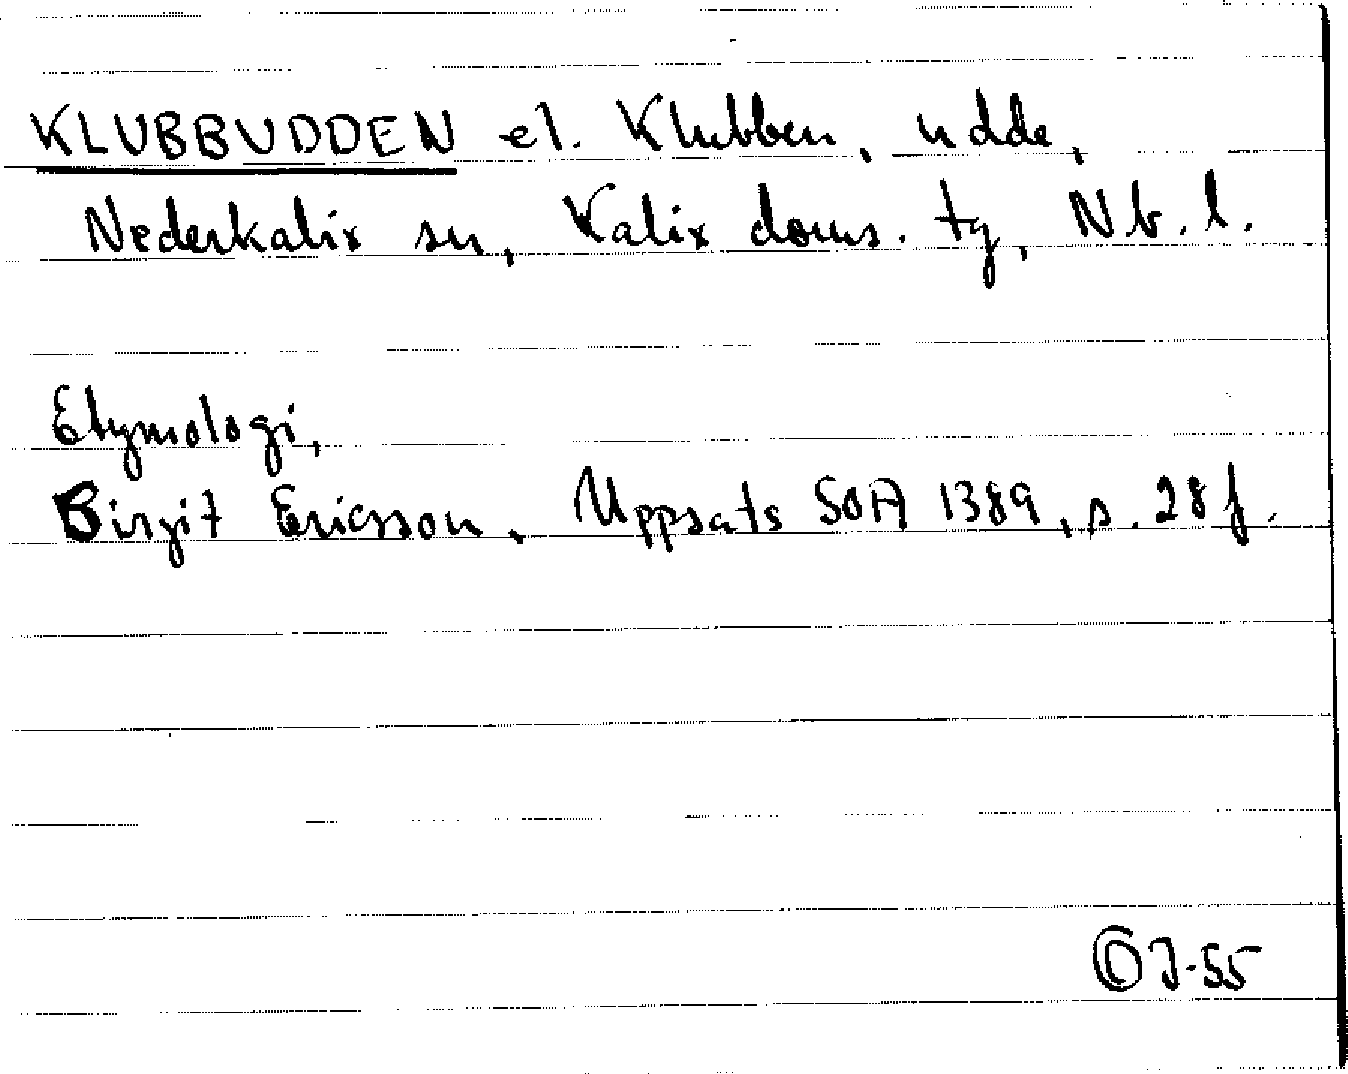 KLUBBUDDEN el. Klubben, udde,
Nederkalix sn, Kalix doms. tg, Nb. l.
Etymologi,
Birgit Ericsson, Uppsats SOA 1389, s. 28 f.
J-55